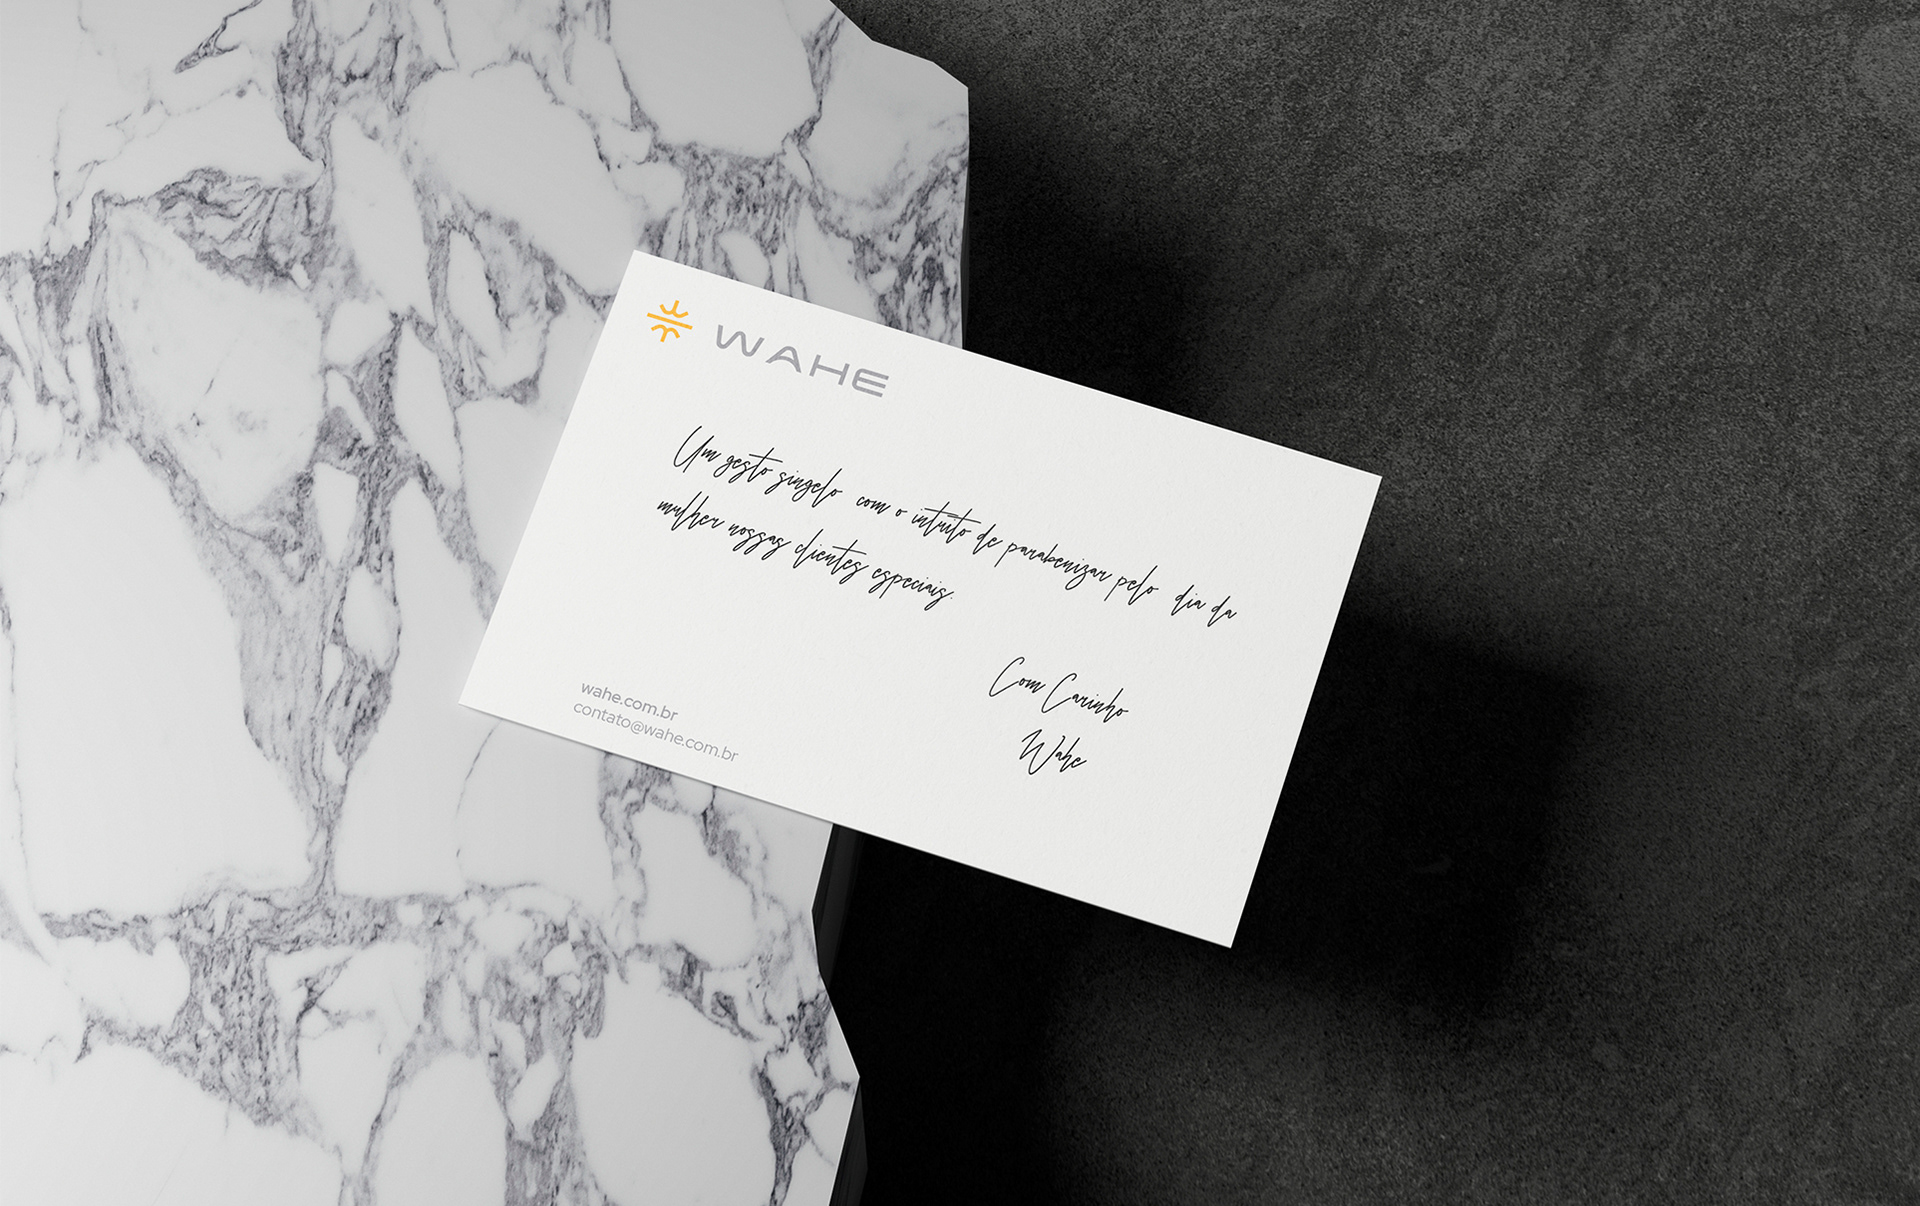 WAHE
Um gesto singelo com o intuito de parabenizar pelo dia da
mulher nossas clientes especiais.
Com Carinho
Wahe
wahe.com.br
contato@wahe.com.br